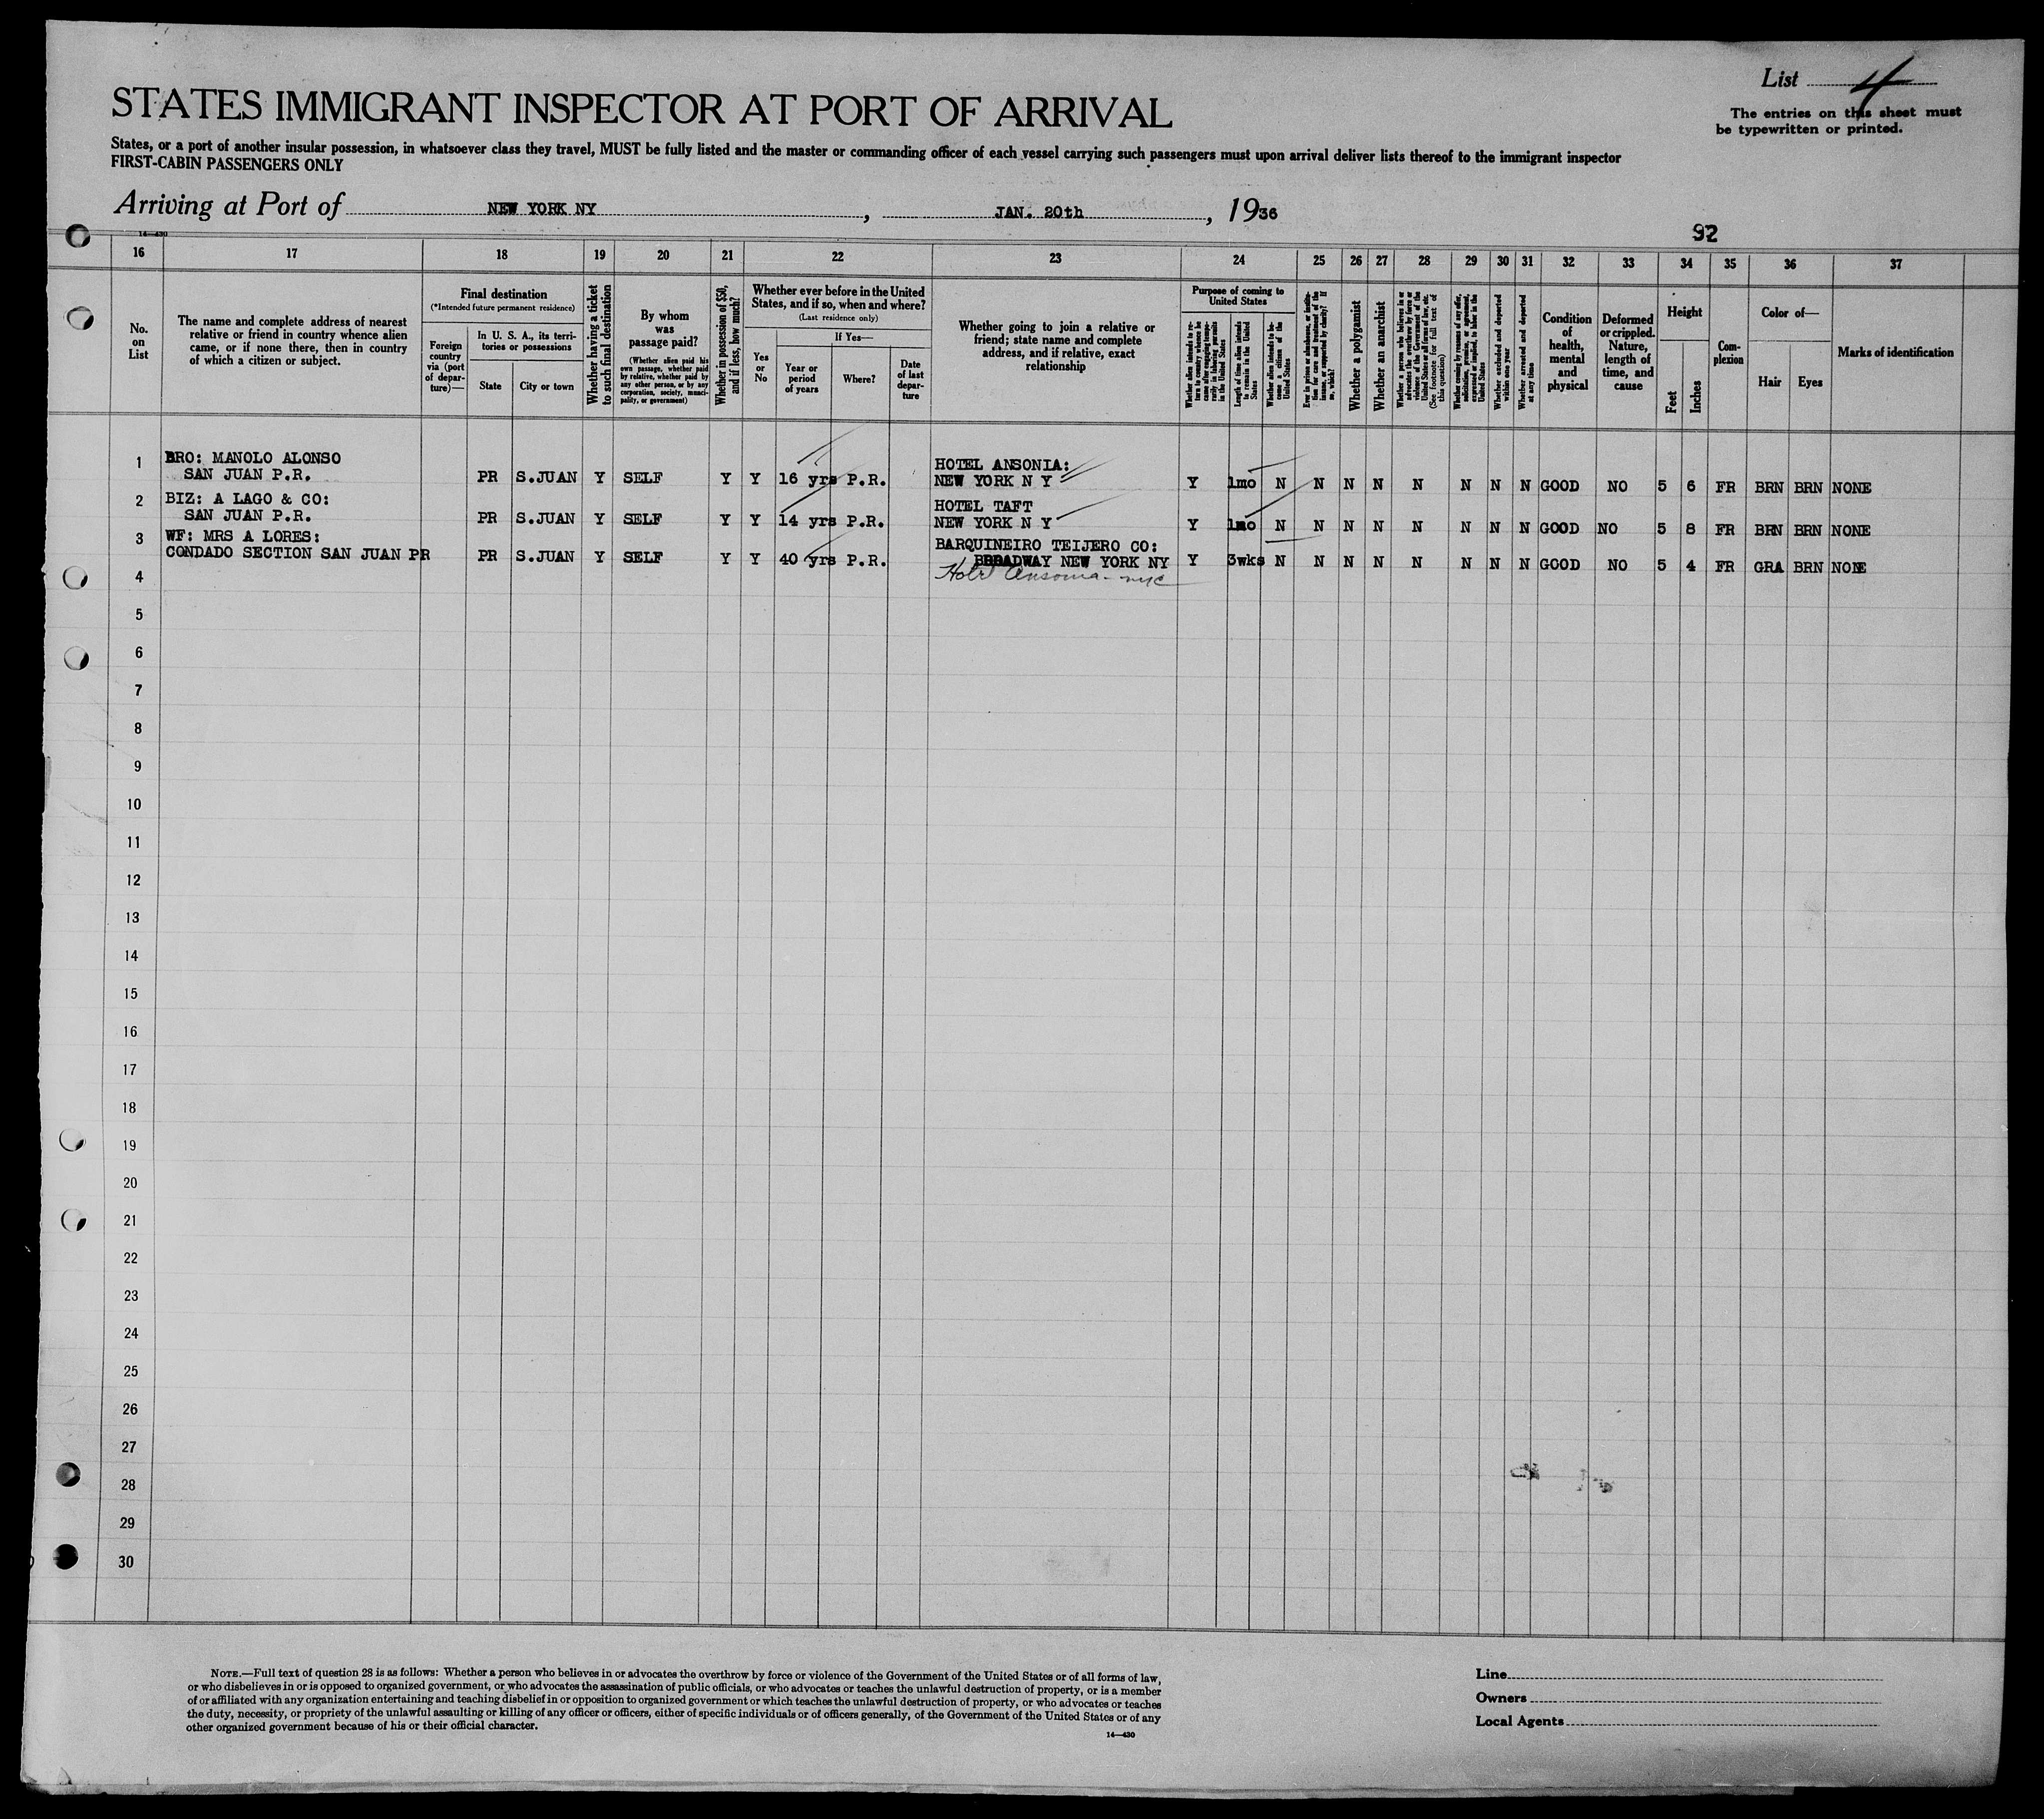 List 4
The entries on this sheet must
be typewritten or printed.
STATES IMMIGRANT INSPECTOR AT PORT OF ARRIVAL
States, or a port of another insular possession, in whatsoever class they travel, MUST be fully listed and the master or commanding officer of each vessel carrying such passengers must upon arrival deliver lists thereof to the immigrant inspector
FIRST-CABIN PASSENGERS ONLY
Arriving at Port of NEW YORK NY, JAN. 20th, 1936
14—430
92
16 17 18 19 20 21 22 23 24 25 26 27 28 29 30 31 32 33 34 35 36 37
No. on List
The name and complete address of nearest relative or friend in country whence alien came, or if none there, then in country of which a citizen or subject.
Final destination
(*Intended future permanent residence)
Foreign country via (port of departure)—
In U. S. A., its territories or possessions
State
City or town
Whether having a ticket to such final destination
By whom was passage paid?
(Whether alien paid his own passage, whether paid by relative, whether paid by any other person, or by any corporation, society, municipality, or government)
Whether in possession of $50, and if less, how much?
Whether ever before in the United States, and if so, when and where?
(Last residence only)
Yes or No
If Yes—
Year or period of years
Where?
Date of last departure
Whether going to join a relative or friend; state name and complete address, and if relative, exact relationship
Purpose of coming to United States
Whether alien intends to return to country whence he came after engaging temporarily in laboring pursuits in the United States
Length of time alien intends to remain in the United States
Whether alien intends to become a citizen of the United States
Ever in prison or almshouse, or institution for care and treatment of the insane, or supported by charity? If so, which?
Whether a polygamist
Whether an anarchist
Whether a person who believes in or advocates the overthrow by force or violence of the Government of the United States or all forms of law, etc. (See footnote for full text of this question)
Whether coming by reason of any offer, solicitation, promise, or agreement, expressed or implied, to labor in the United States
Whether excluded and deported within one year
Whether arrested and deported at any time
Condition of health, mental and physical
Deformed or crippled. Nature, length of time, and cause
Height
Feet
Inches
Complexion
Color of—
Hair
Eyes
Marks of identification
1 BRO: MANOLO ALONSO
SAN JUAN P.R. PR S.JUAN Y SELF Y Y 16 yrs P.R. HOTEL ANSONIA:
NEW YORK N Y Y 1mo N N N N N N N N GOOD NO 5 6 FR BRN BRN NONE
2 BIZ: A LAGO & CO:
SAN JUAN P.R. PR S.JUAN Y SELF Y Y 14 yrs P.R. HOTEL TAFT
NEW YORK N Y Y 1mo N N N N N N N N GOOD NO 5 8 FR BRN BRN NONE
3 WF: MRS A LORES:
CONDADO SECTION SAN JUAN PR PR S.JUAN Y SELF Y Y 40 yrs P.R. BARQUINEIRO TEIJERO CO:
BROADWAY NEW YORK NY Y 3wks N N N N N N N N GOOD NO 5 4 FR GRA BRN NONE
Hotel Ansonia - NYC
4
5
6
7
8
9
10
11
12
13
14
15
16
17
18
19
20
21
22
23
24
25
26
27
28
29
30
NOTE.—Full text of question 28 is as follows: Whether a person who believes in or advocates the overthrow by force or violence of the Government of the United States or of all forms of law,
or who disbelieves in or is opposed to organized government, or who advocates the assassination of public officials, or who advocates or teaches the unlawful destruction of property, or is a member
of or affiliated with any organization entertaining and teaching disbelief in or opposition to organized government or which teaches the unlawful destruction of property, or who advocates or teaches
the duty, necessity, or propriety of the unlawful assaulting or killing of any officer or officers, either of specific individuals or of officers generally, of the Government of the United States or of any
other organized government because of his or their official character.
14—430
Line
Owners
Local Agents